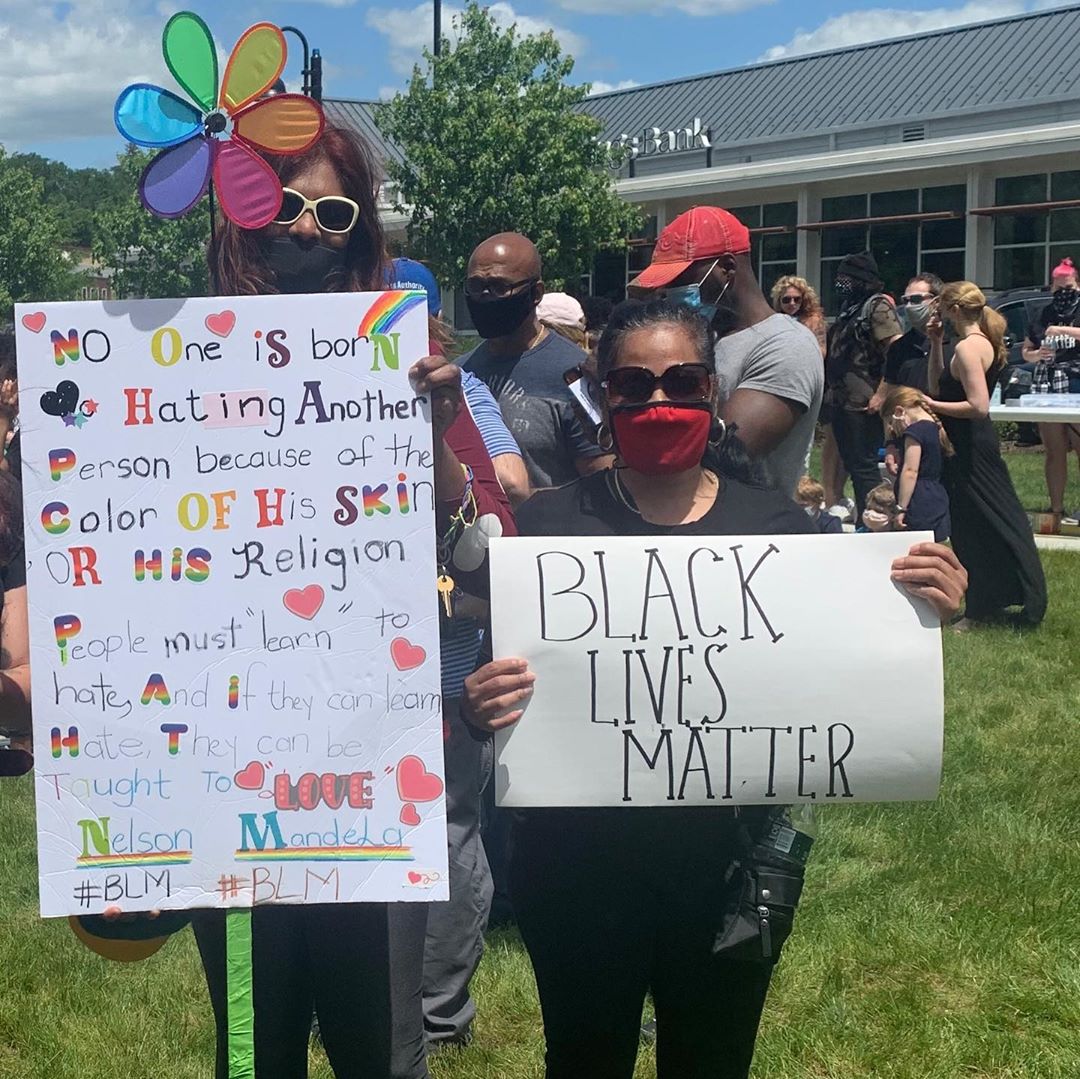 No One is borN
Hating Another
Person because of the
Color OF His SKin
OR HiS Religion
People must "learn" to
hate, And if they can learn
Hate, They can be
Taught To LOVE
Nelson MandeLa
#BLM #BLM
BLACK
LIVES
MATTER
Bank